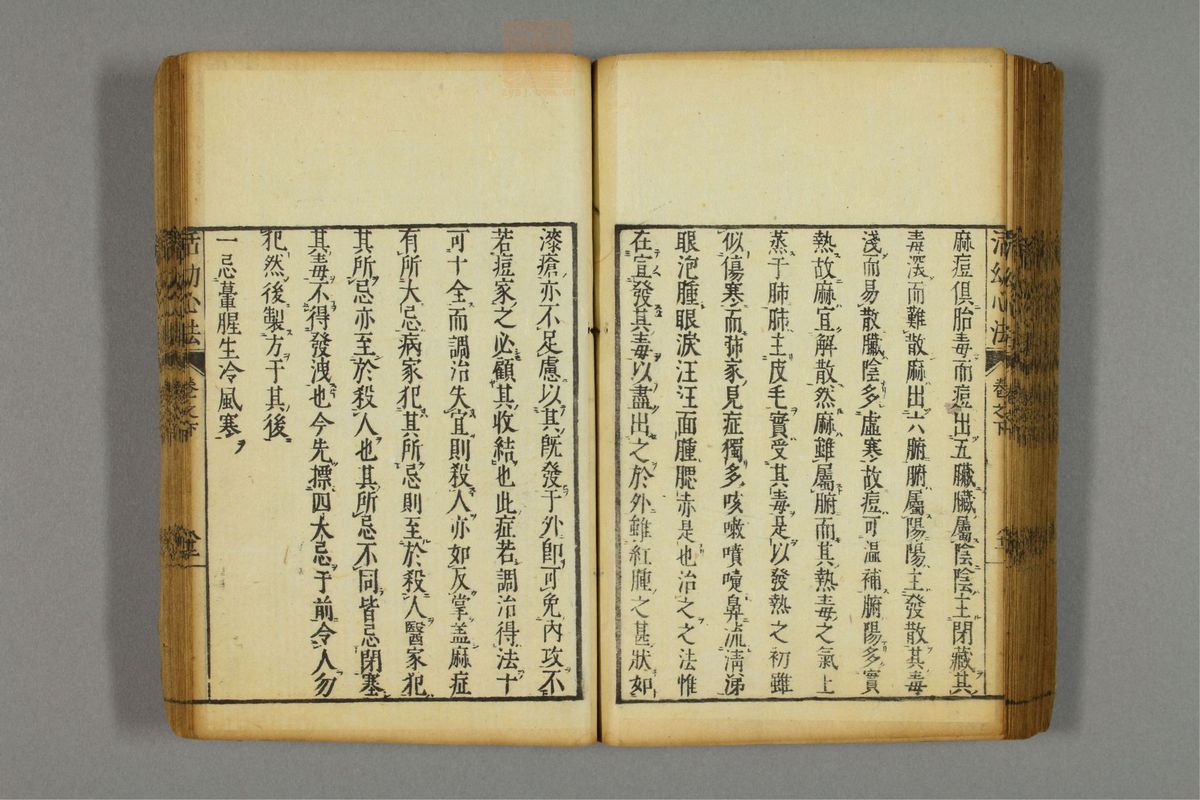 麻痘俱胎毒而痘出五臟臟屬陰陰主閉藏其
毒深而難散麻出六腑腑屬陽陽主發散其毒
淺而易散臟陰多虛寒故痘可溫補腑陽多實
熱故麻宜解散然麻雖屬腑而其熱毒之氣上
蒸于肺肺主皮毛實受其毒是以發熱之初雖
似傷寒而肺家見症獨多咳嗽噴嚏鼻流清涕
眼泡腫眼淚汪汪面腫腮赤是也治之之法惟
在宣發其毒以盡出之於外雖紅腫之甚狀如
漆瘡亦不足慮以其既發于外即可免內攻不
若痘家之必顧其收結也此症若調治得法十
可十全而調治失宜則殺人亦如反掌盖麻症
有所大忌病家犯其所忌則至於殺人醫家犯
其所忌亦至於殺人也其所忌不同皆忌閉塞
其毒不得發洩也今先摽四大忌于前令人勿
犯然後製方于其後
一忌葷腥生冷風寒
活幼心法
卷之下